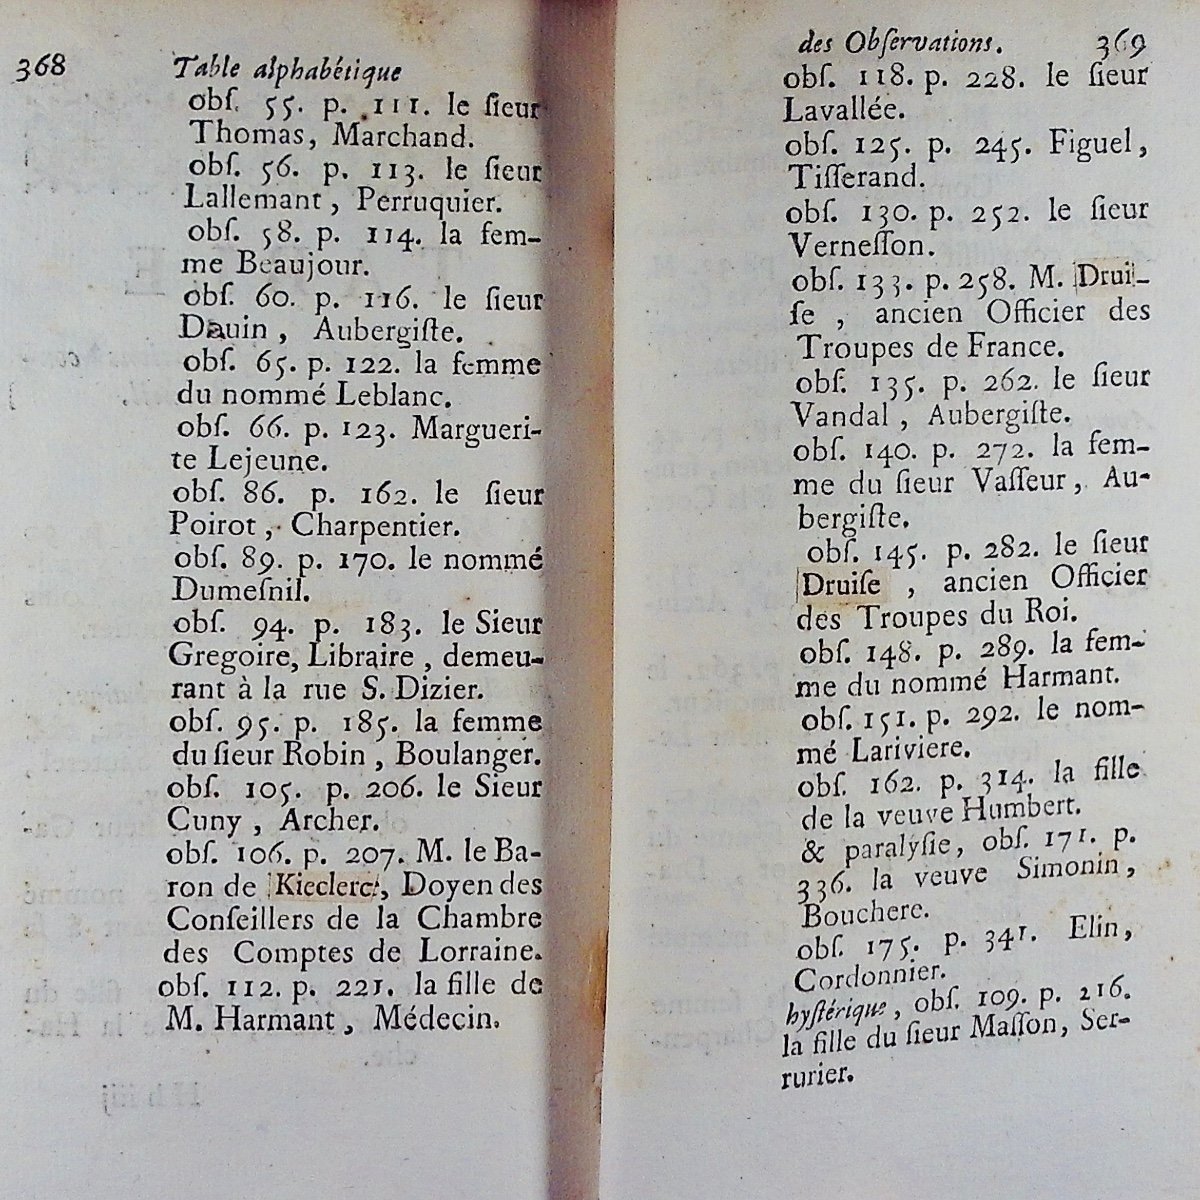 368
Table alphabétique
obſ. 55. p. 111. le ſieur
Thomas, Marchand.
obſ. 56. p. 113. le ſieur
Lallemant, Perruquier.
obſ. 58. p. 114. la fem-
me Beaujour.
obſ. 60. p. 116. le ſieur
Dauin, Aubergiſte.
obſ. 65. p. 122. la femme
du nommé Leblanc.
obſ. 66. p. 123. Margueri-
te Lejeune.
obſ. 86. p. 162. le ſieur
Poirot, Charpentier.
obſ. 89. p. 170. le nommé
Dumeſnil.
obſ. 94. p. 183. le Sieur
Gregoire, Libraire, demeu-
rant à la rue S. Dizier.
obſ. 95. p. 185. la femme
du ſieur Robin, Boulanger.
obſ. 105. p. 206. le Sieur
Cuny, Archer.
obſ. 106. p. 207. M. le Ba-
ron de Kieclerc, Doyen des
Conſeillers de la Chambre
des Comptes de Lorraine.
obſ. 112. p. 221. la fille de
M. Harmant, Médecin.
des Obſervations.
369
obſ. 118. p. 228. le ſieur
Lavallée.
obſ. 125. p. 245. Figuel,
Tiſſerand.
obſ. 130. p. 252. le ſieur
Verneſſon.
obſ. 133. p. 258. M. Drui-
ſe, ancien Officier des
Troupes de France.
obſ. 135. p. 262. le ſieur
Vandal, Aubergiſte.
obſ. 140. p. 272. la fem-
me du ſieur Vaſſeur, Au-
bergiſte.
obſ. 145. p. 282. le ſieur
Druiſe, ancien Officier
des Troupes du Roi.
obſ. 148. p. 289. la fem-
me du nommé Harmant.
obſ. 151. p. 292. le nom-
mé Lariviere.
obſ. 162. p. 314. la fille
de la veuve Humbert.
& paralyſie, obſ. 171. p.
336. la veuve Simonin,
Bouchere.
obſ. 175. p. 341. Elin,
Cordonnier.
hyſtérique, obſ. 109. p. 216.
la fille du ſieur Maſſon, Ser-
rurier.